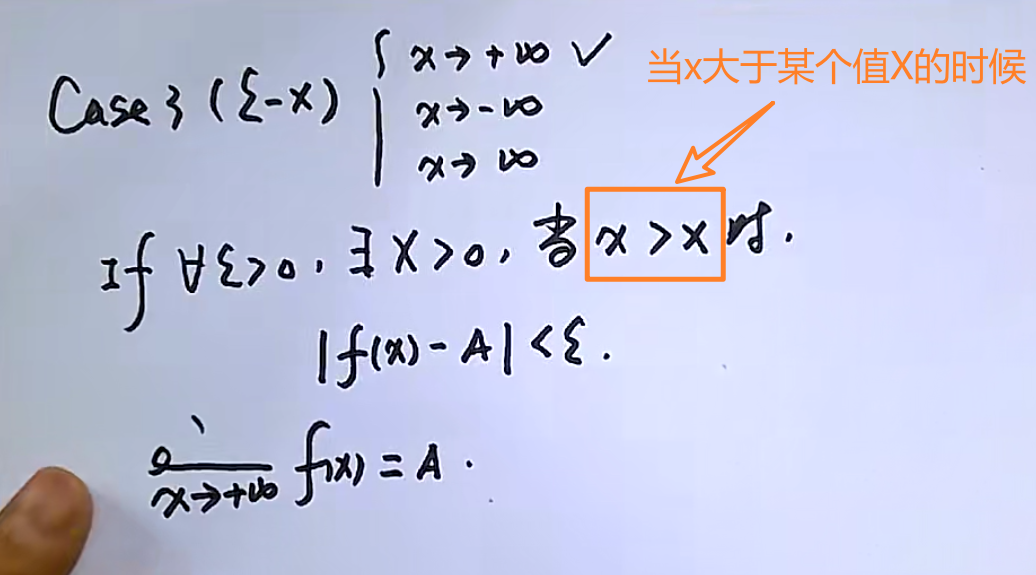 Case 3 (ε-X) { x→+∞ ✓
x→-∞
x→∞
当x大于某个值X的时候
If ∀ε>0, ∃X>0, 当 x>X 时.
|f(x)-A|<ε.
x→+∞ f(x)=A.